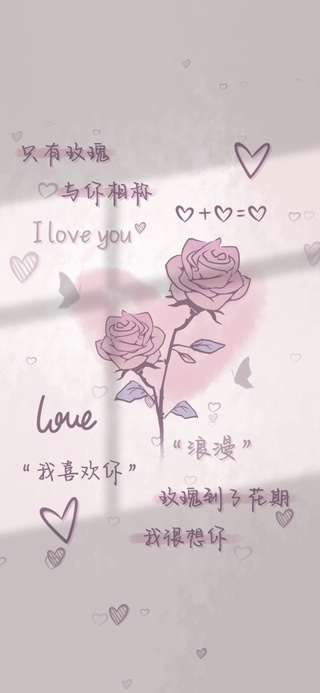 只有玫瑰
与你相称
♡+♡=♡
I love you
love
“浪漫”
“我喜欢你”
玫瑰到了花期
我很想你